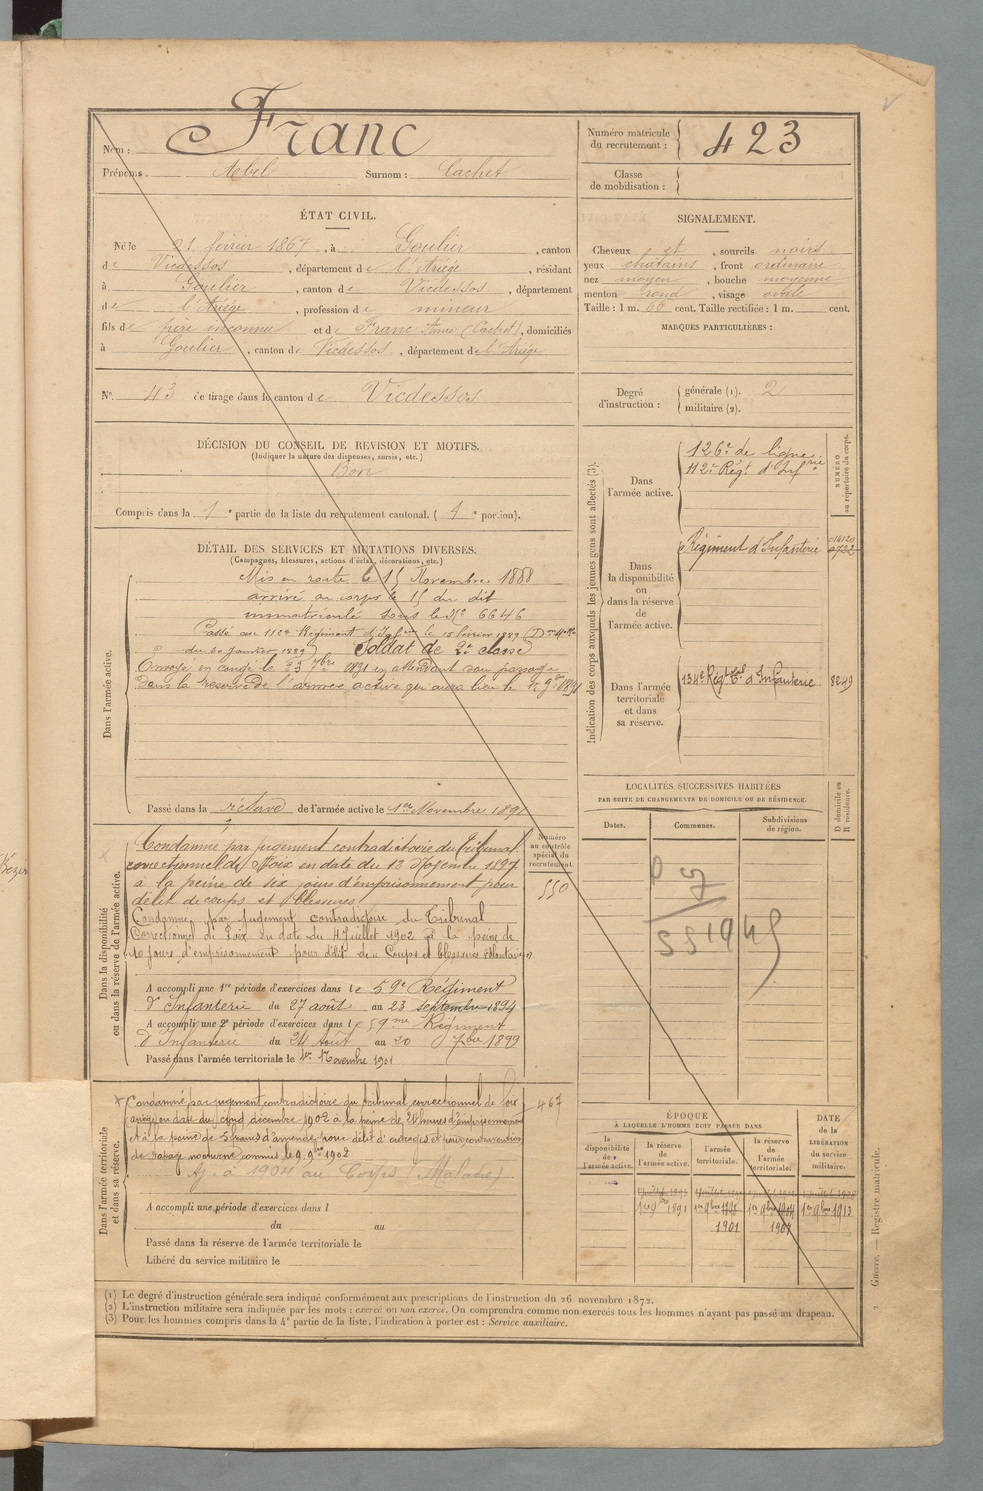 Nom : Franc
Prénoms. Abel Surnom : Cachet
Numéro matricule du recrutement : 423
Classe de mobilisation :
ÉTAT CIVIL.
Né le 21 février 1867, à Goulier, canton
de Vicdessos, département de l'Ariège, résidant
à Goulier, canton de Vicdessos, département
de l'Ariège, profession de mineur
fils de père inconnu et de Franc Anne (Cachet), domiciliés
à Goulier, canton de Vicdessos, département de l'Ariège
N° 43 de tirage dans le canton de Vicdessos
SIGNALEMENT.
Cheveux et, sourcils noirs
yeux chatains, front ordinaire
nez moyen, bouche moyenne
menton rond, visage ovale
Taille : 1 m. 60 cent. Taille rectifiée : 1 m. cent.
MARQUES PARTICULIÈRES :
Degré d'instruction : générale (1). 2
militaire (2).
DÉCISION DU CONSEIL DE REVISION ET MOTIFS.
(Indiquer la nature des dispenses, sursis, etc.)
Bon
Compris dans la 1e partie de la liste du recrutement cantonal. ( 4e portion).
DÉTAIL DES SERVICES ET MUTATIONS DIVERSES.
(Campagnes, blessures, actions d'éclat, décorations, etc.)
Dans l'armée active.
Mis en route le 15 Novembre 1888
arrivé au corps le 15 du dit
immatriculé sous le N° 6646
Passé au 112e Régiment d'Infrie le 15 février 1889 (Don Mlle
du 30 janvier 1889) Soldat de 2e classe
Envoyé en congé le 23 7bre 1891 en attendant son passage
dans la réserve de l'armée active qui aura lieu le 1er 9bre 1891
Passé dans la réserve de l'armée active le 1er Novembre 1891
Dans la disponibilité ou dans la réserve de l'armée active.
Condamné par jugement contradictoire du Tribunal
correctionnel de Foix en date du 12 Novembre 1897
à la peine de six jours d'emprisonnement pour
délit de coups et blessures
Condamné par jugement contradictoire du Tribunal
Correctionnel de Foix en date du 4 Juillet 1902 à la peine de
10 jours d'emprisonnement pour délit de « Coups et blessures volontaires »
A accompli une 1re période d'exercices dans le 59e Régiment
d'Infanterie du 27 août au 23 septembre 1894
A accompli une 2e période d'exercices dans le 59me Régiment
d'Infanterie du 24 Août au 20 7bre 1899
Passé dans l'armée territoriale le 1er Novembre 1901
Numéro au contrôle spécial du recrutement.
550
Dans l'armée territoriale et dans sa réserve.
Condamné par jugement contradictoire du tribunal correctionnel de Foix
ariège en date du cinq décembre 1902 à la peine de 24 heures d'emprisonnement
et à la peine de 5 francs d'amende pour délit d'outrages et pour contravention
de tapage nocturne commis le 9 9bre 1902
467
Aj. à 1904 au Corps (Malade)
A accompli une période d'exercices dans l
du au
Passé dans la réserve de l'armée territoriale le
Libéré du service militaire le
Indication des corps auxquels les jeunes gens sont affectés (3).
NUMÉRO au répertoire du corps.
Dans l'armée active.
126e de ligne.
112e Régt d'Infrie
Dans la disponibilité ou dans la réserve de l'armée active.
Régiment d'Infanterie
Dans l'armée territoriale et dans sa réserve.
134e Régt Tal d'Infanterie 8249
LOCALITÉS SUCCESSIVES HABITÉES
PAR SUITE DE CHANGEMENTS DE DOMICILE OU DE RÉSIDENCE.
Dates. Communes. Subdivisions de région. D domicile ou R résidence.
ÉPOQUE
À LAQUELLE L'HOMME DOIT PASSER DANS
DATE de la LIBÉRATION du service militaire.
la disponibilité de l'armée active. la réserve de l'armée active. l'armée territoriale. la réserve de l'armée territoriale.
1er 9bre 1891 1er 9bre 1901 1er 9bre 1907 1er 9bre 1913
(1) Le degré d'instruction générale sera indiqué conformément aux prescriptions de l'instruction du 26 novembre 1872.
(2) L'instruction militaire sera indiquée par les mots : exercé ou non exercé. On comprendra comme non exercés tous les hommes n'ayant pas passé au drapeau.
(3) Pour les hommes compris dans la 4e partie de la liste, l'indication à porter est : Service auxiliaire.
Guerre. — Registre matricule.